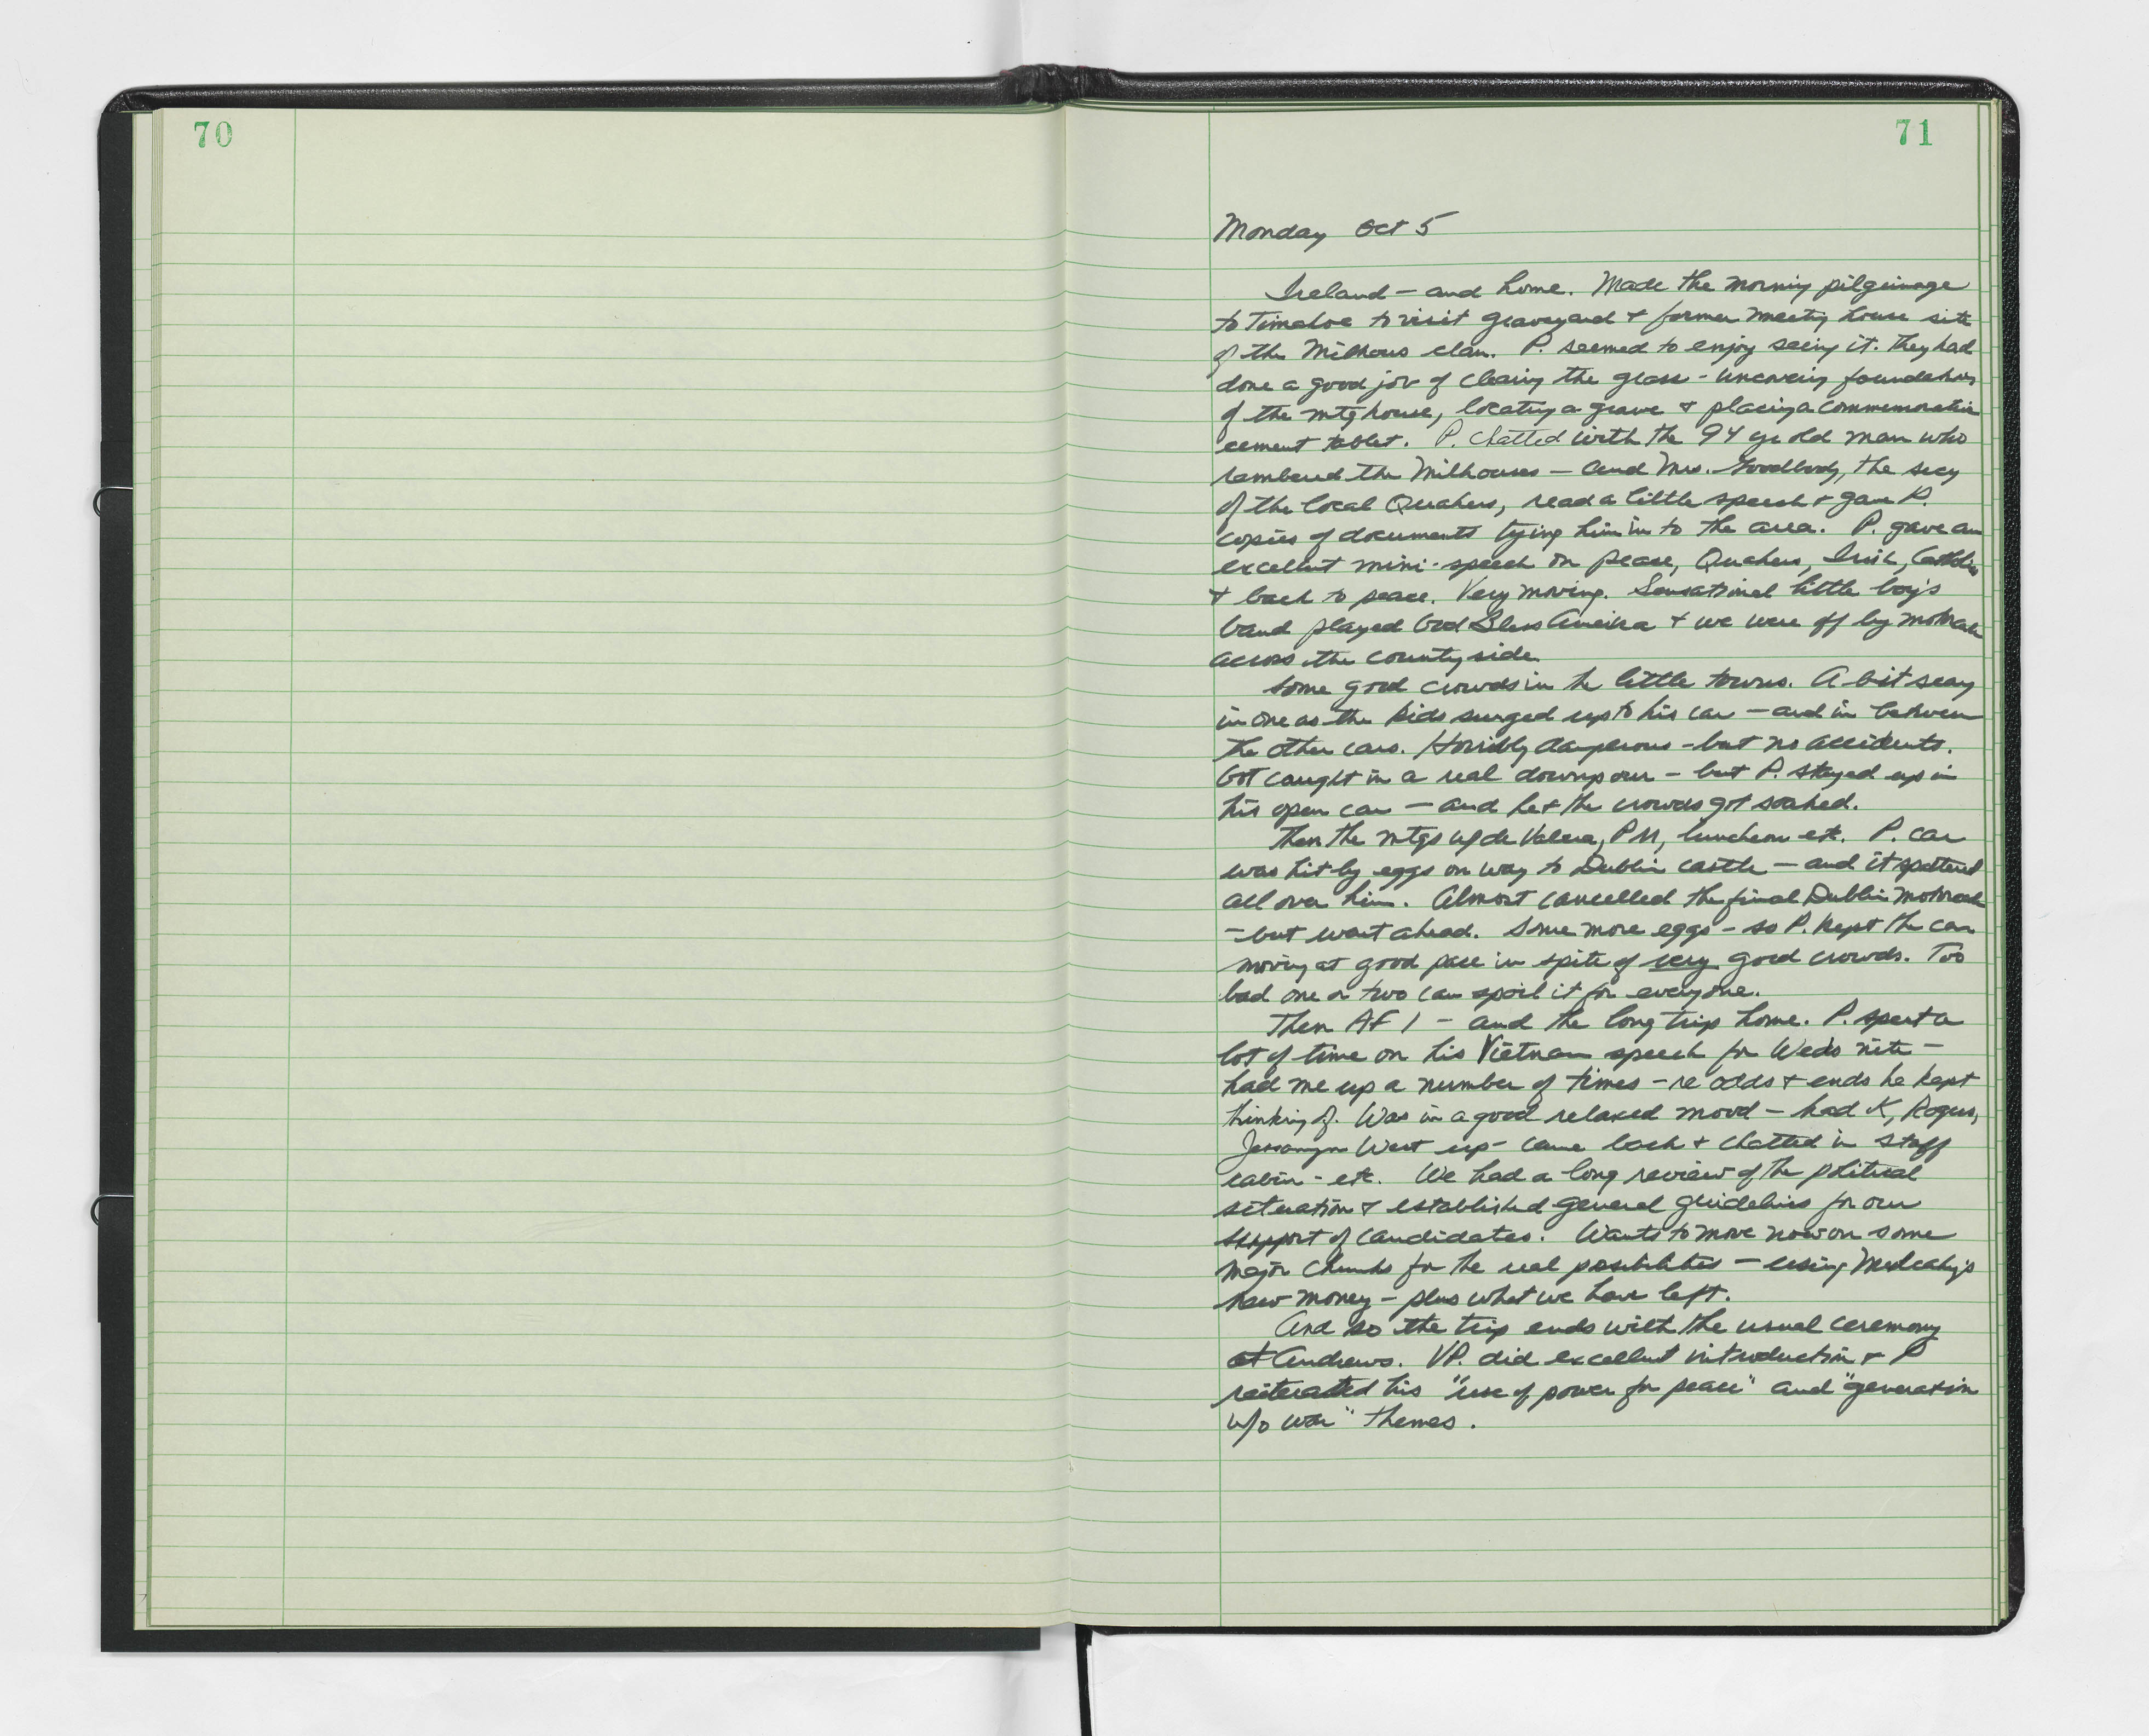 70
71
Monday Oct 5
Ireland — and home. Made the morning pilgrimage
to Timahoe to visit graveyard & former meeting house site
of the Milhous clan. P. seemed to enjoy seeing it. They had
done a good job of clearing the grass - uncovering foundations
of the mtg house, locating a grave & placing a commemorative
cement tablet. P. chatted with the 94 yr old man who
rembered the Milhouses — and Mrs. Goodbody, the secy
of the local Quakers, read a little speech & gave P.
copies of documents tying him in to the area. P. gave an
excellent mini-speech on peace, Quakers, Irish, Catholics
& back to peace. Very moving. Sensational little boy's
band played God Bless America & we were off by motorcade
across the countyside.
Some good crowds in the little towns. A bit scary
in one as the kids surged up to his car — and in between
the other cars. Horribly dangerous - but no accidents.
Got caught in a real downpour - but P. stayed up in
his open car — and he & the crowds got soaked.
Then the mtgs w/de Valera, PM, luncheon etc. P. car
was hit by eggs on way to Dublin Castle — and it spattered
all over him. Almost cancelled the final Dublin motorcade
- but went ahead. Some more eggs - so P. kept the car
moving at good pace in spite of very good crowds. Too
bad one or two can spoil it for everyone.
Then AF 1 - and the long trip home. P. spent a
lot of time on his Vietnam speech for Weds nite —
had me up a number of times - re odds & ends he kept
thinking of. Was in a good relaxed mood — had K, Rogers,
Jessamyn West up - came back & chatted in staff
cabin - etc. We had a long review of the political
situation & established general guidelines for our
support of candidates. Wants to move now on some
major chunks for the real posibilities — using Mulcahy's
new money - plus what we have left.
And so the trip ends with the usual ceremony
at Andrews. VP. did excellent introduction & P
reiterated his "use of power for peace" and "generation
w/o war" themes.